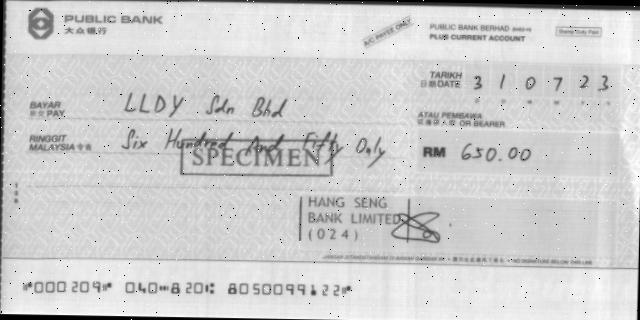 PUBLIC BANK
大众银行
A/C PAYEE ONLY
PUBLIC BANK BERHAD
PLUS CURRENT ACCOUNT
Stamp Duty Paid
TARIKH
日期 DATE 3 1 0 7 2 3
BAYAR
PAY LLDY Sdn Bhd
ATAU PEMBAWA
OR BEARER
RINGGIT
MALAYSIA Six Hundred And Fifty Only
SPECIMEN
RM 650.00
HANG SENG
BANK LIMITED
(024)
⑈000209⑈ 040⑉820⑆ 8050099122⑈